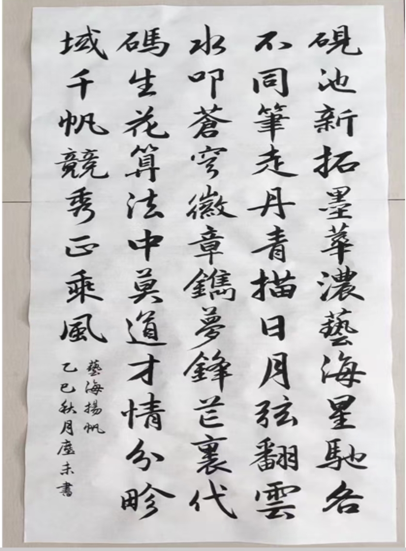 硯池新拓墨華濃藝海星馳各
不同筆走丹青描日月弦翻雲
水叩蒼穹徽章鐫夢鋒芒裏代
碼生花算法中莫道才情分畛
域千帆競秀正乘風
藝海揚帆
乙巳秋月塵未書